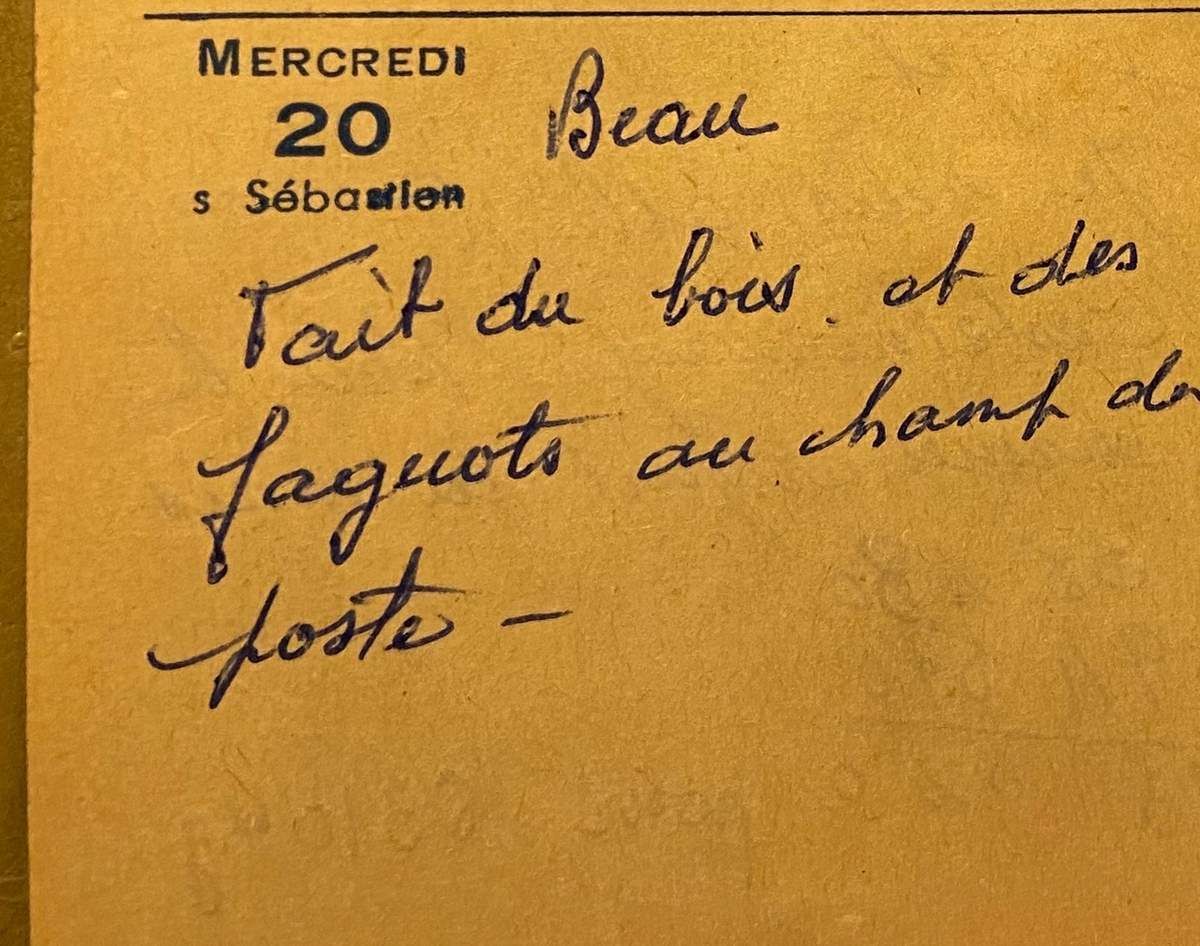 MERCREDI
20
s Sébastien
Beau
Fait du bois. et des
faguots au champ de
poste -